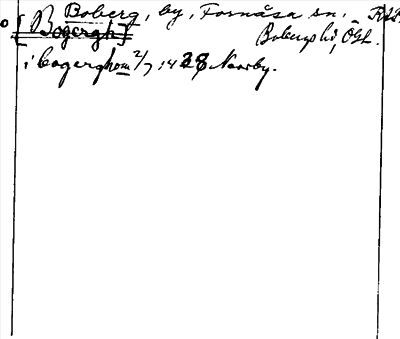 Boberg, by, Fornåsa sn.
[Bogergh] Bobergs hd, Ögl.
i bogerghom 2/7 1428 Norrby.